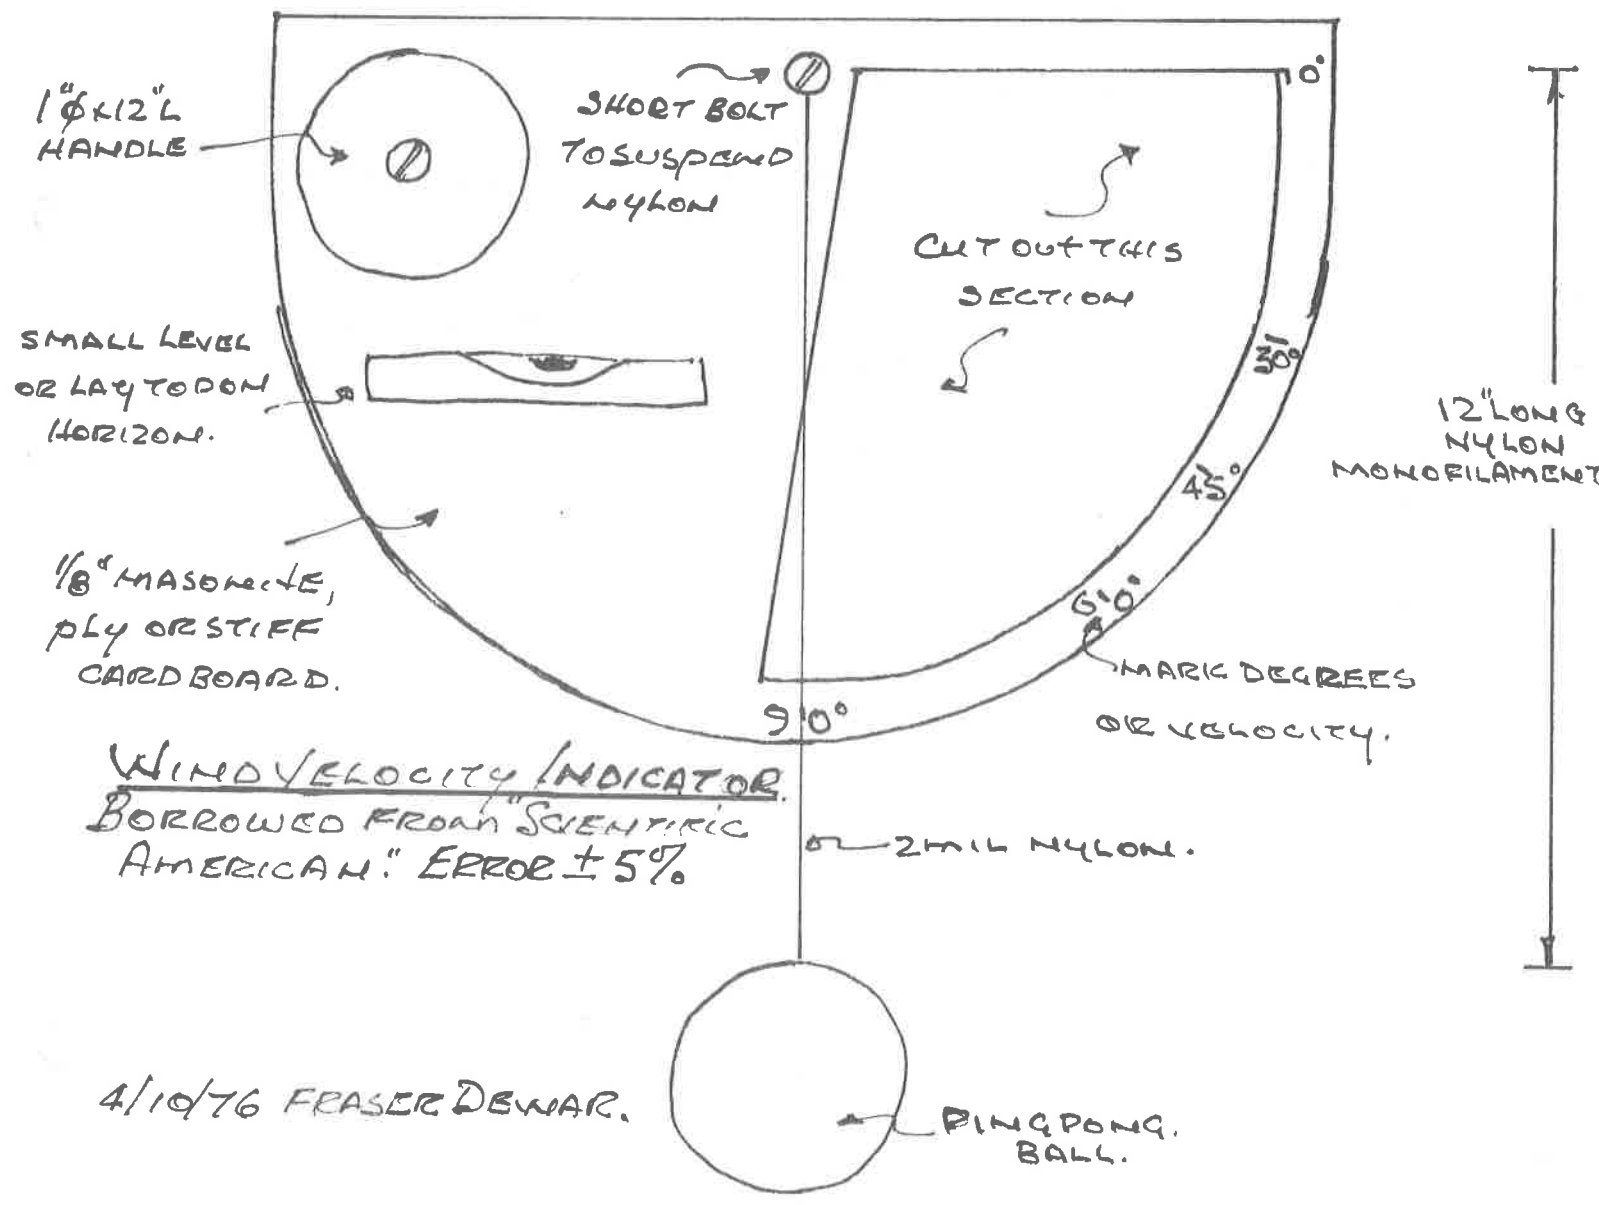 1"φ×12"L
HANDLE
SHORT BOLT
TO SUSPEND
NYLON
0°
CUT OUT THIS
SECTION
SMALL LEVEL
OR LAY TO DON
HORIZON.
30°
45°
60°
90°
12" LONG
NYLON
MONOFILAMENT
1/8" MASONITE,
PLY OR STIFF
CARDBOARD.
MARK DEGREES
OR VELOCITY.
WIND VELOCITY INDICATOR.
BORROWED FROM "SCIENTIFIC
AMERICAN." ERROR ± 5%
2 MIL NYLON.
4/10/76 FRASER DEWAR.
PING PONG.
BALL.